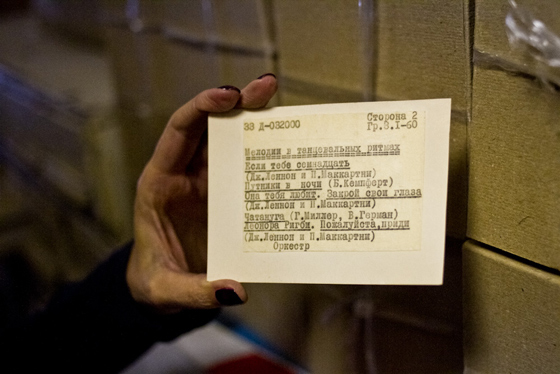 33 Д-032000 Сторона 2
Гр.3.I-60
Мелодии в танцевальных ритмах
Если тебе семнадцать
(Дж.Леннон и П.Маккартни)
Путники в ночи (Б.Кемпферт)
Она тебя любит. Закрой свои глаза
(Дж.Леннон и П.Маккартни)
Чатануга (Г.Миллер, В.Герман)
Леонора Ригби. Пожалуйста,приди
(Дж.Леннон и П.Маккартни)
Оркестр